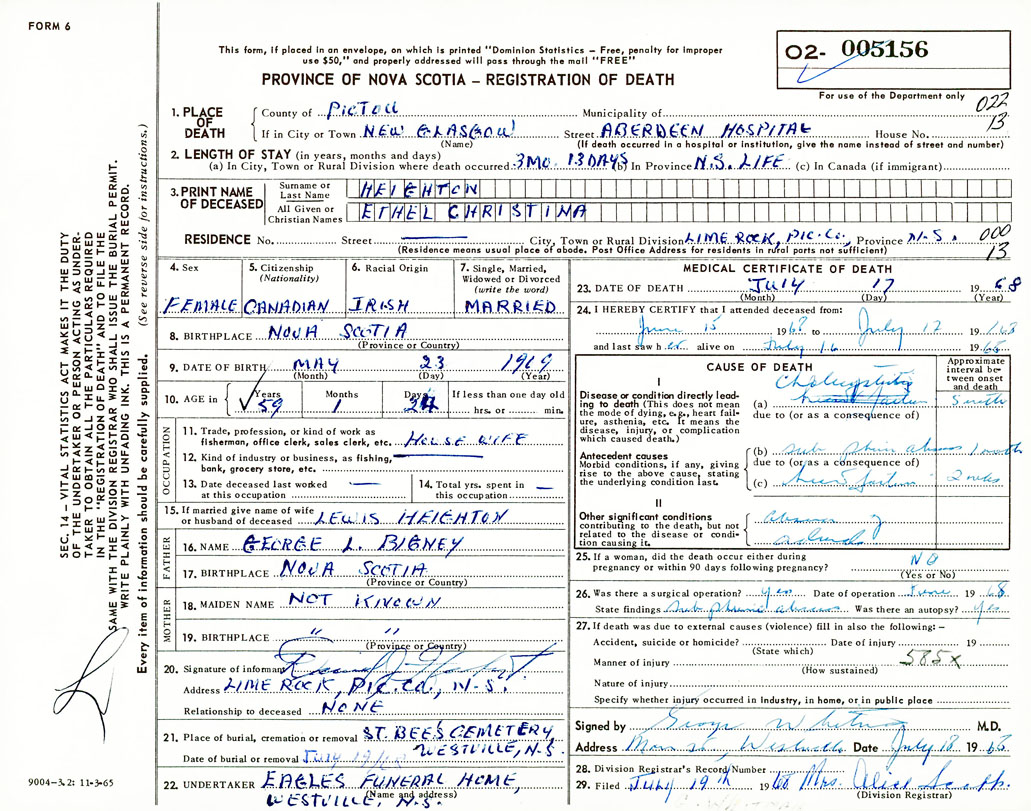 FORM 6
This form, if placed in an envelope, on which is printed "Dominion Statistics – Free, penalty for improper
use $50," and properly addressed will pass through the mail "FREE"
PROVINCE OF NOVA SCOTIA – REGISTRATION OF DEATH
02- 005156
For use of the Department only
022
13
1. PLACE OF DEATH
County of PICTOU Municipality of
If in City or Town NEW GLASGOW Street ABERDEEN HOSPITAL House No.
(Name) (If death occurred in a hospital or institution, give the name instead of street and number)
2. LENGTH OF STAY (in years, months and days)
(a) In City, Town or Rural Division where death occurred 3 MO. 13 DAYS (b) In Province N.S. LIFE (c) In Canada (if immigrant)
3. PRINT NAME OF DECEASED
Surname or Last Name HEIGHTON
All Given or Christian Names ETHEL CHRISTINA
RESIDENCE No. Street City, Town or Rural Division LIME ROCK, PIC. CO., Province N.S.
(Residence means usual place of abode. Post Office Address for residents in rural parts not sufficient)
000
13
4. Sex
FEMALE
5. Citizenship
(Nationality)
CANADIAN
6. Racial Origin
IRISH
7. Single, Married,
Widowed or Divorced
(write the word)
MARRIED
8. BIRTHPLACE NOVA SCOTIA
(Province or Country)
9. DATE OF BIRTH MAY 23 1909
(Month) (Day) (Year)
10. AGE in
Years Months Days If less than one day old
59 1 24 hrs. or min.
OCCUPATION
11. Trade, profession, or kind of work as
fisherman, office clerk, sales clerk, etc. HOUSE WIFE
12. Kind of industry or business, as fishing,
bank, grocery store, etc.
13. Date deceased last worked
at this occupation
14. Total yrs. spent in
this occupation
15. If married give name of wife
or husband of deceased LEWIS HEIGHTON
FATHER
16. NAME GEORGE L. BIGNEY
17. BIRTHPLACE NOVA SCOTIA
(Province or Country)
MOTHER
18. MAIDEN NAME NOT KNOWN
19. BIRTHPLACE " "
(Province or Country)
20. Signature of informant
Address LIME ROCK, PIC. CO., N.S.
Relationship to deceased NONE
21. Place of burial, cremation or removal ST. BEE'S CEMETERY,
WESTVILLE, N.S.
Date of burial or removal July 19/68
22. UNDERTAKER EAGLES FUNERAL HOME,
(Name and address)
WESTVILLE, N.S.
MEDICAL CERTIFICATE OF DEATH
23. DATE OF DEATH JULY 17 1968
(Month) (Day) (Year)
24. I HEREBY CERTIFY that I attended deceased from:
June 15 1968 to July 17 1968
and last saw her alive on July 16 1968
CAUSE OF DEATH
Approximate
interval be-
tween onset
and death
I
Disease or condition directly lead-
ing to death (This does not mean
the mode of dying, e.g., heart fail-
ure, asthenia, etc. It means the
disease, injury, or complication
which caused death.)
(a) Cholecystitis
due to (or as a consequence of)
Antecedent causes
Morbid conditions, if any, giving
rise to the above cause, stating
the underlying condition last.
(b) sub phrenic abscess 1 month
due to (or as a consequence of)
(c) heart failure 2 weeks
II
Other significant conditions
contributing to the death, but not
related to the disease or condi-
tion causing it.
25. If a woman, did the death occur either during
pregnancy or within 90 days following pregnancy? NO
(Yes or No)
26. Was there a surgical operation? yes Date of operation June 1968
State findings sub phrenic abscess Was there an autopsy? yes
27. If death was due to external causes (violence) fill in also the following: –
Accident, suicide or homicide? Date of injury 19
(State which)
Manner of injury 585X
(How sustained)
Nature of injury
Specify whether injury occurred in Industry, in home, or in public place
Signed by George Whitman M.D.
Address Main St, Westville Date July 18 1968
28. Division Registrar's Record Number
29. Filed July 19th 1968 Mrs. Alice
(Division Registrar)
SEC. 14 – VITAL STATISTICS ACT MAKES IT THE DUTY
OF THE UNDERTAKER OR PERSON ACTING AS UNDER-
TAKER TO OBTAIN ALL THE PARTICULARS REQUIRED
IN THE "REGISTRATION OF DEATH" AND TO FILE THE
SAME WITH THE DIVISION REGISTRAR WHO SHALL ISSUE THE BURIAL PERMIT.
WRITE PLAINLY WITH UNFADING INK. THIS IS A PERMANENT RECORD.
Every item of information should be carefully supplied. (See reverse side for instructions.)
9004-3.2: 11-3-65